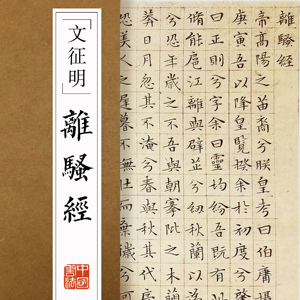 「文征明」
離騷經
離騷經
帝高陽之苗裔兮朕皇考曰伯庸攝
庚寅吾以降皇覽揆余於初度兮肇
曰正則兮字余曰靈均紛吾既有
脩能扈江離與辟芷兮紉秋蘭以為
兮恐年歲之不吾與朝搴阰之木蘭
莽日月忽其不淹兮春與秋其代序
恐美人之遲暮不撫壯而棄穢